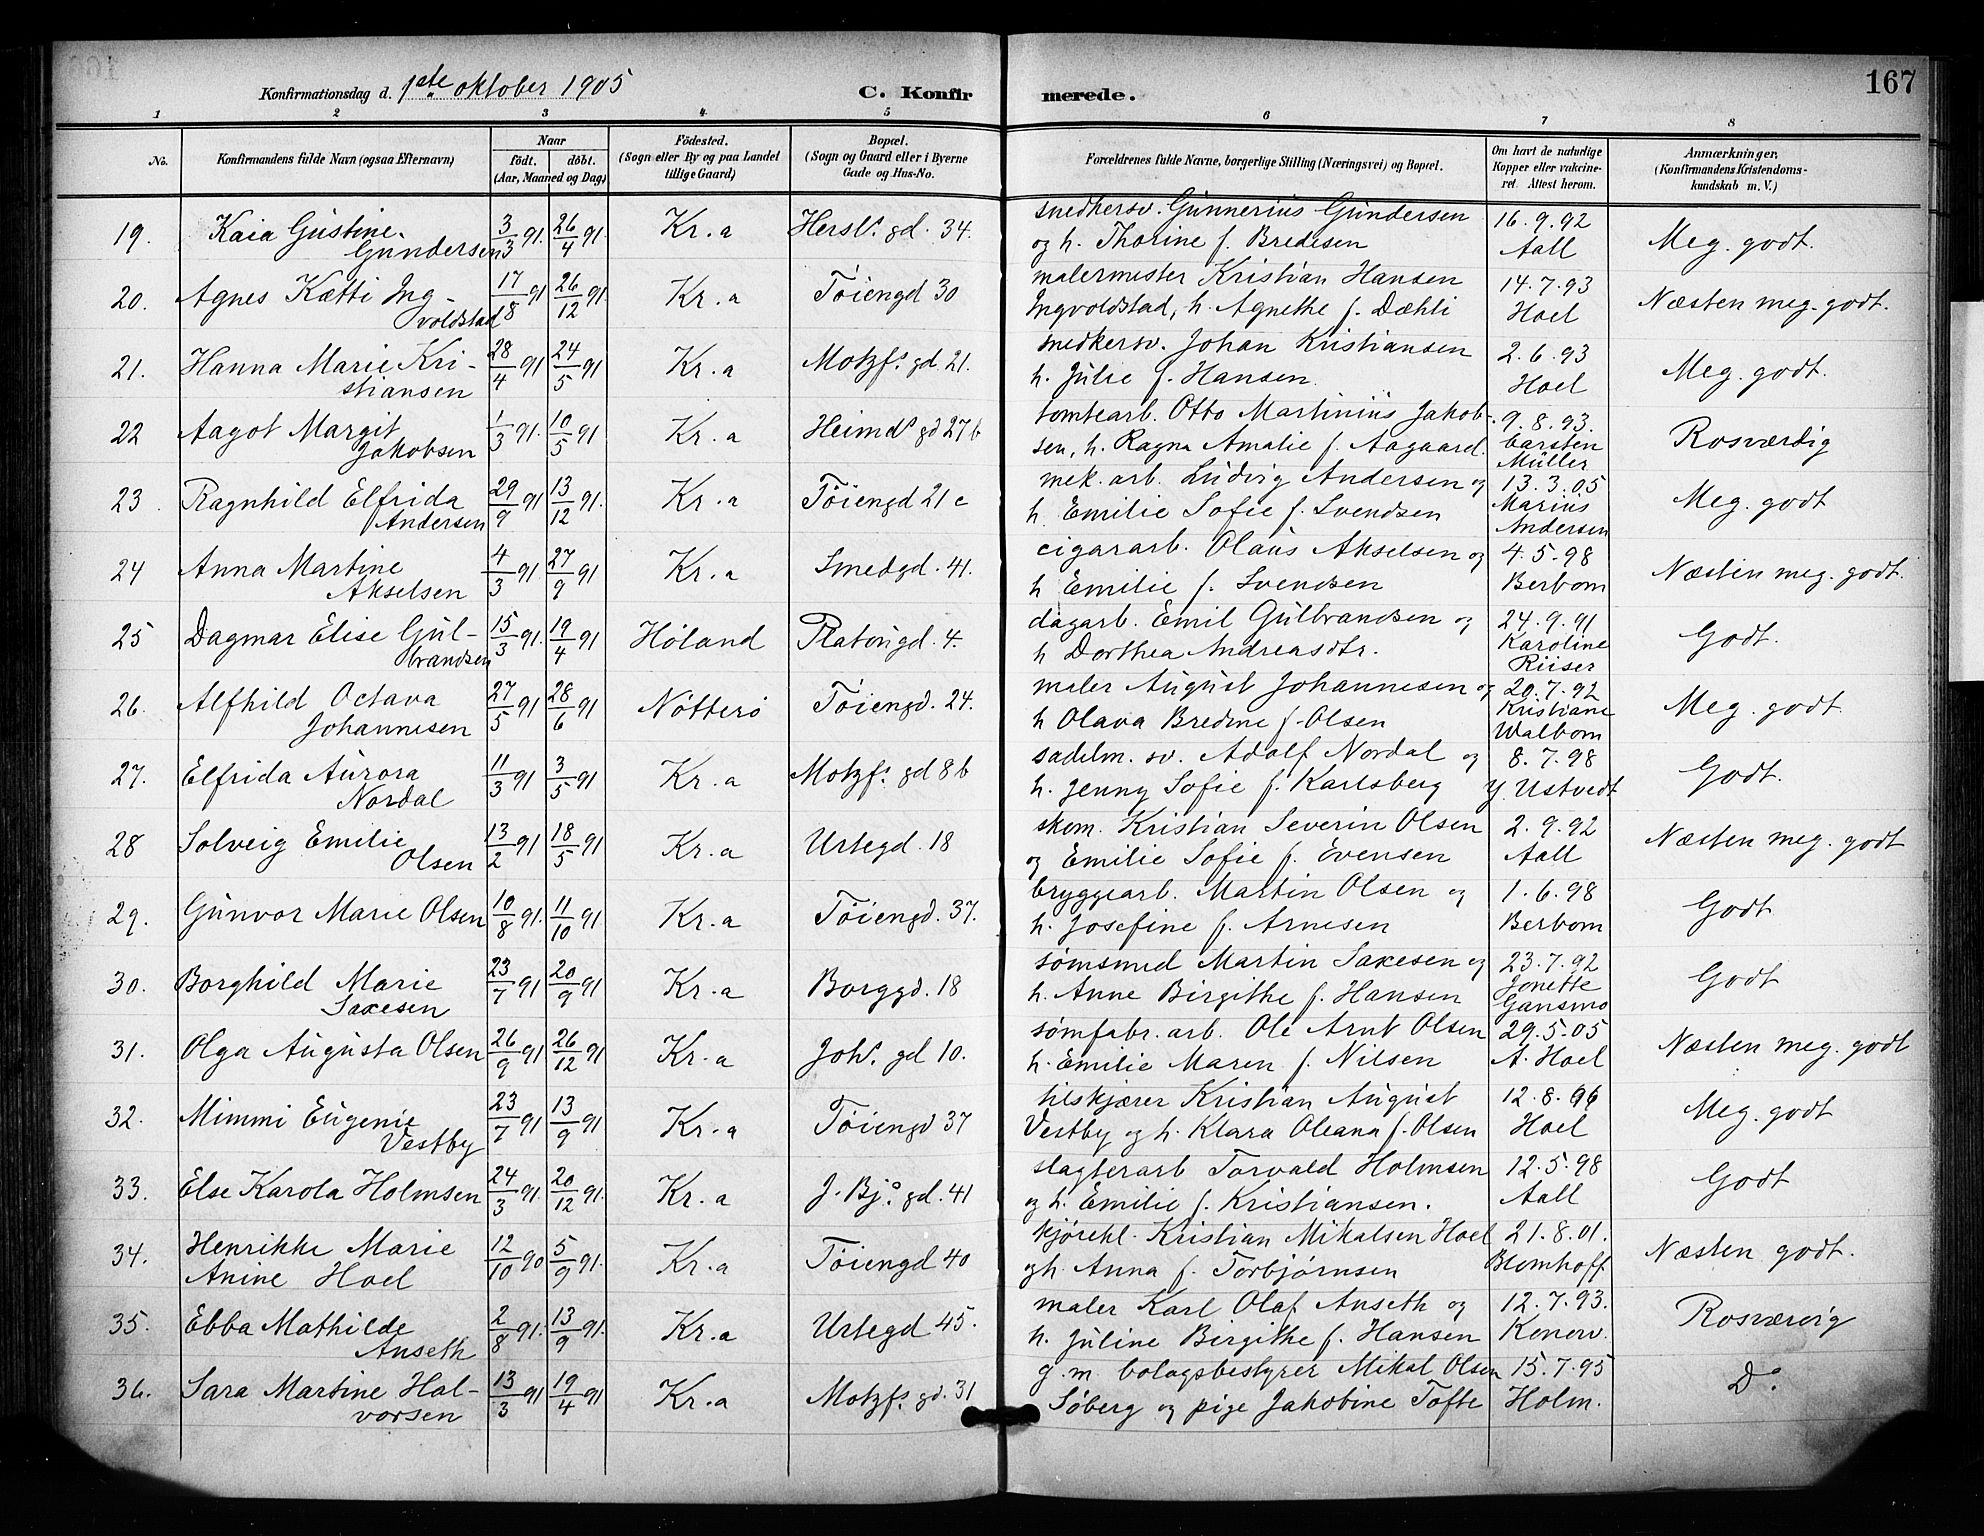 167
Konfirmationsdag d. 1ste oktober 1905 C. Konfirmerede.
1 2 3 4 5 6 7 8
No. Konfirmandens fulde Navn (ogsaa Efternavn) Naar födt. döbt. (Aar, Maaned og Dag) Födested. (Sogn eller By og paa Landet tillige Gaard) Bopæl. (Sogn og Gaard eller i Byerne Gade og Hus-No. Forældrenes fulde Navne, borgerlige Stilling (Næringsvei) og Bopæl. Om havt de naturlige Kopper eller vakcineret. Attest herom. Anmærkninger. (Konfirmandens Kristendomskundskab m. V.)
19. Kaia Gustine Gundersen 3/3 91. 26/4 91. Kr.a Hersls. gd. 34. snedkersv. Gunnerius Gundersen og h. Thorine f. Bredesen 16.9.92 Aall Meg. godt.
20. Agnes Kætti Ingvoldstad 17/8 91 26/12 91. Kr.a Töiengd 30 malermester Kristian Hansen Ingvoldstad, h. Agnethe f. Dæhli 14.7.93 Hoel Næsten meg. godt.
21. Hanna Marie Kristiansen 28/4 91 24/5 91 Kr.a Motzfs. gd 21. snedkersv. Johan Kristiansen h. Julie f. Hansen. 2.6.93 Hoel Meg. godt.
22 Aagot Margit Jakobsen 1/3 91. 10/5 91 Kr.a Heimds gd 27b tomtearb. Otto Martinius Jakobsen, h. Ragna Amalie f. Aagaard. 9.8.93. Carsten Müller Rosværdig
23. Ragnhild Elfrida Andersen 29/9 91 13/12 91. Kr.a Töiengd 21c mek. arb. Ludvig Andersen og h. Emilie Sofie f. Svendsen 13.3.05 Marius Andersen Meg. godt
24 Anna Martine Akselsen 4/3 91 27/9 91 Kr.a Smedgd. 41. cigararb. Olaus Akselsen og h Emilie f. Svendsen 4.5.98 Berbom Næsten meg. godt.
25 Dagmar Elise Gulbrandsen 15/3 91. 19/4 91 Höland Platougd. 4. dagarb. Emil Gulbrandsen og h Dorthea Andreasdtr. 24.9.91 Karoline Riiser Godt.
26. Alfhild Octava Johannesen 27/5 91 28/6 91 Nötterö Töiengd. 24. maler August Johannesen og h Olava Bredine f. Olsen 29.7.92 Kristiane Walbom Meg. godt
27. Elfrida Aurora Nordal 11/3 91 3/5 91 Kr.a Motzfs. gd 8b sadelm. sv. Adolf Nordal og h. Jenny Sofie f. Karlsberg 8.7.98 Y. Ustvedt Godt.
28 Solveig Emilie Olsen 13/2 91 18/5 91 Kr.a Urtegd. 18 skom. Kristian Severin Olsen og Emilie Sofie f. Evensen 2.9.92 Aall Næsten meg. godt
29. Gunvor Marie Olsen 10/8 91. 11/10 91 Kr.a Töiengd. 37. bryggearb. Martin Olsen og h. Josefine f. Arnesen 1.6.98 Berbom Godt
30. Borghild Marie Saxesen 23/7 91 20/9 91 Kr.a Borggd. 18 sömsmed Martin Saxesen og h. Anne Birgithe f. Hansen 23.7.92 Jonette Gansmo Godt
31. Olga Augusta Olsen 26/9 91 26/12 91 Kr.a Johs. gd 10. sömfabr. arb. Ole Arnt Olsen h. Emilie Maren f. Nilsen 29.5.05 A. Hoel Næsten meg. godt
32. Mimmi Eugenie Vestby 23/7 91 13/9 91 Kr.a Töiengd 37 tilskjærer Kristian August Vestby og h. Klara Oleana f. Olsen 12.8.96 Hoel Meg. godt
33. Else Karola Holmsen 24/3 91. 20/12 91. Kr.a J. Bjs. gd. 41 slagterarb Torvald Holmsen og h. Emilie f. Kristiansen. 12.5.98 Aall Godt
34. Henrikke Marie Anine Hoel 12/10 90 5/9 91. Kr.a Töiengd 40 kjörekl. Kristian Mikalsen Hoel og h. Anna f. Torbjörnsen 21.8.01. Blomhoff Næsten godt.
35. Ebba Mathilde Anseth 2/8 91. 13/9 91. Kr.a Urtegd 45. maler Karl Olaf Anseth og h. Juline Birgithe f. Hansen 12.7.93. Konow. Rosværdig
36. Sara Martine Halvorsen 13/3 91 19/4 91 Kr.a Motzfs. gd. 31 g. m. bolagsbestyrer Mikal Olsen Söberg og pige Jakobine Tofte 15.7.95 Holm. Do.